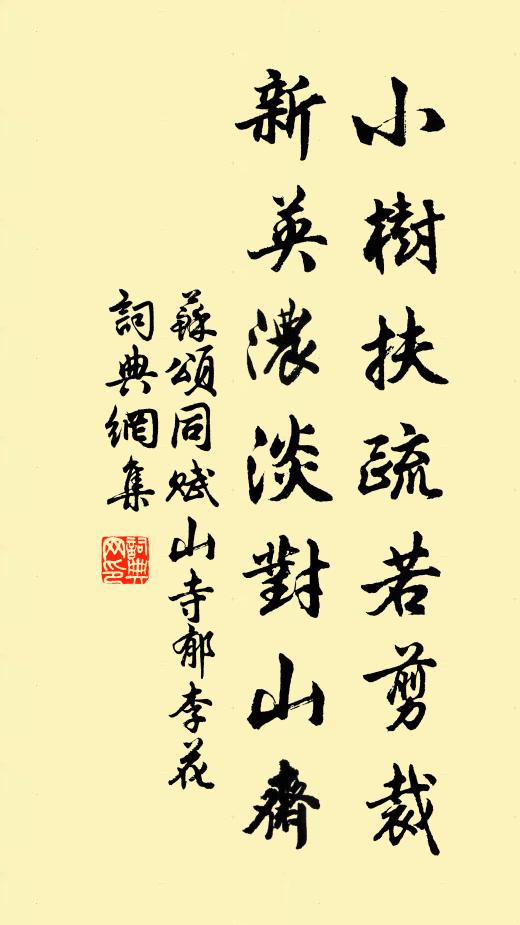 小樹扶疏若剪裁
新英濃淡對山齋
蘇頌同賦山寺郁李花
詞典網集
詞典网印